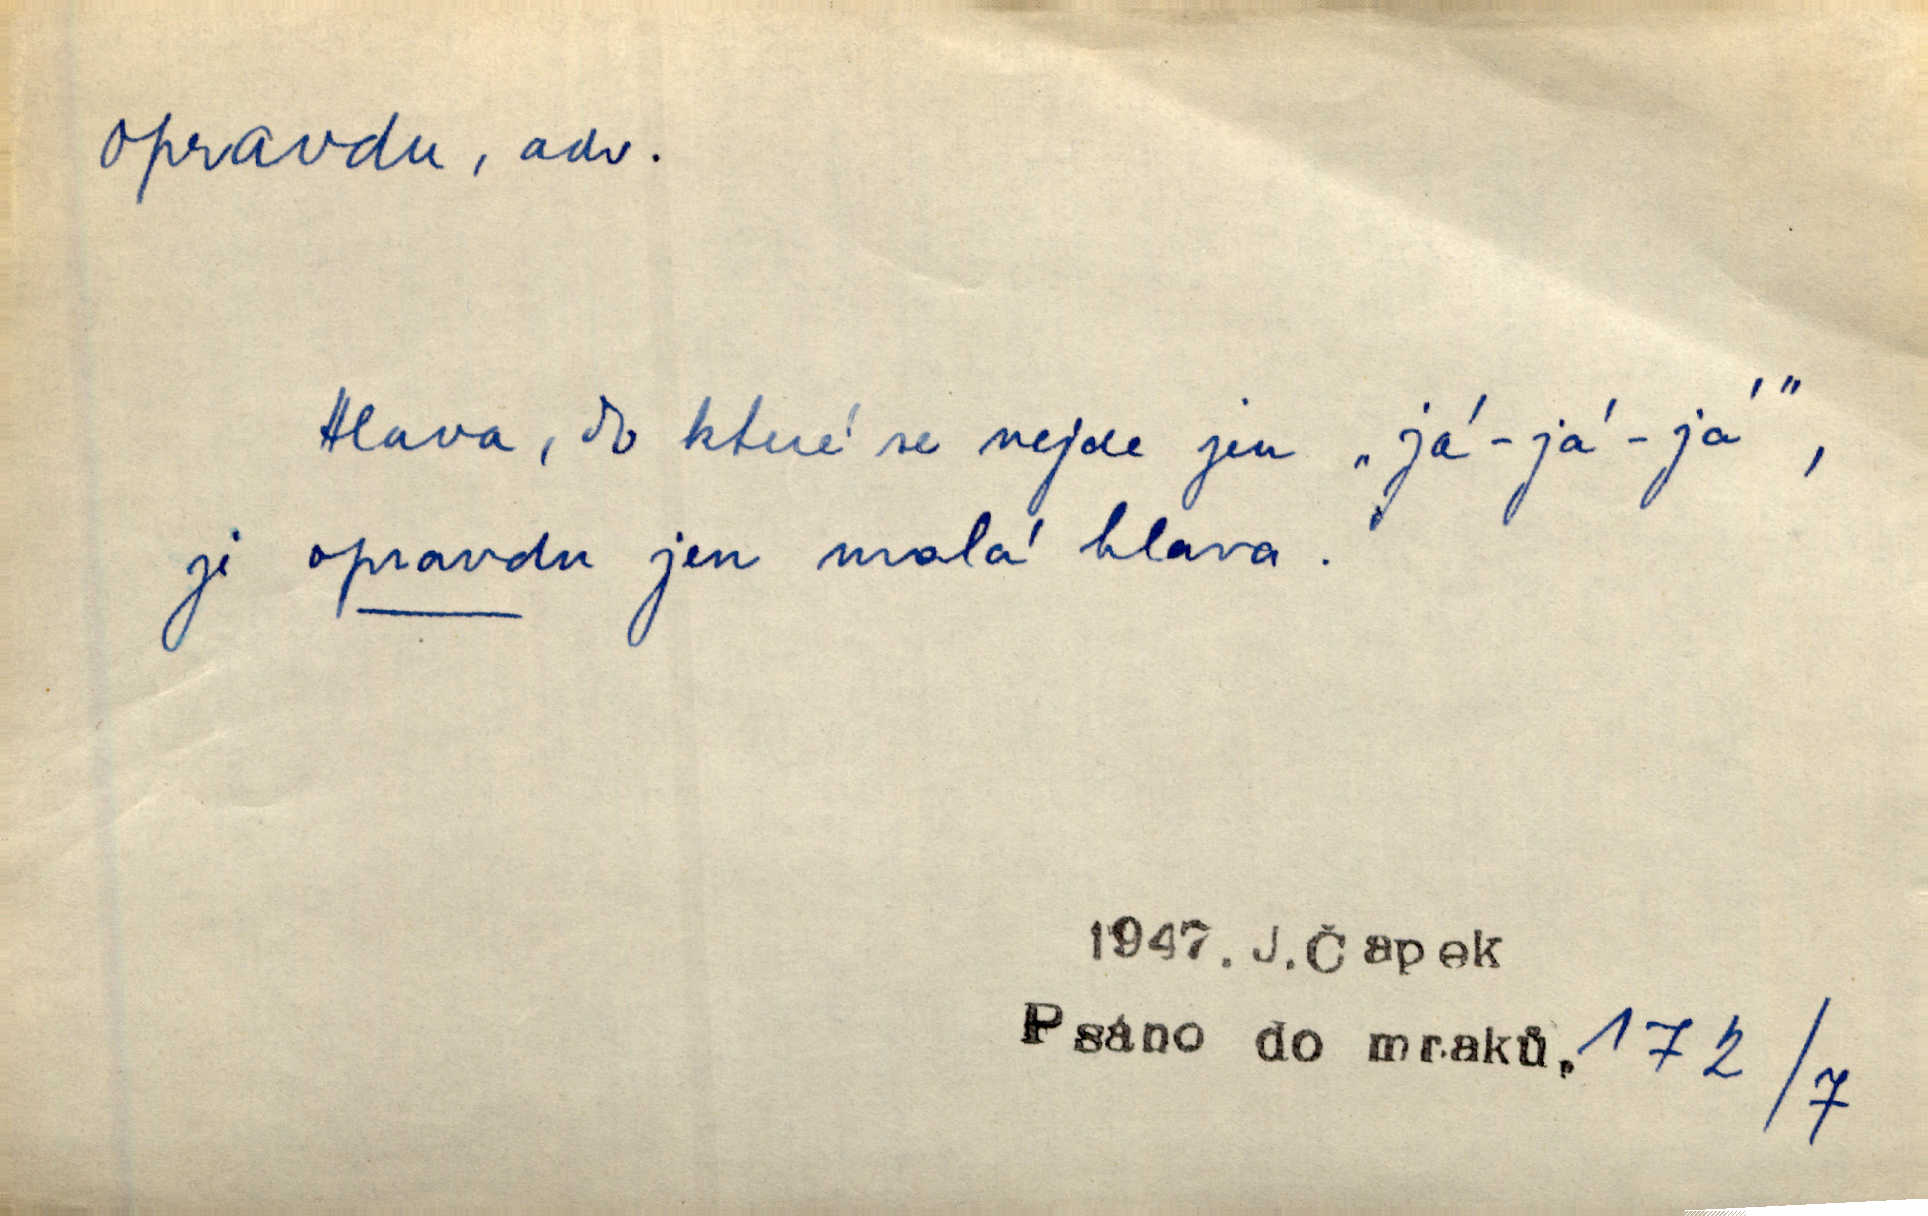 opravdu, adv.
Hlava, do které se vejde jen „já-já-já",
je opravdu jen malá hlava.
1947. J. Čapek
Psáno do mraků, 172/7